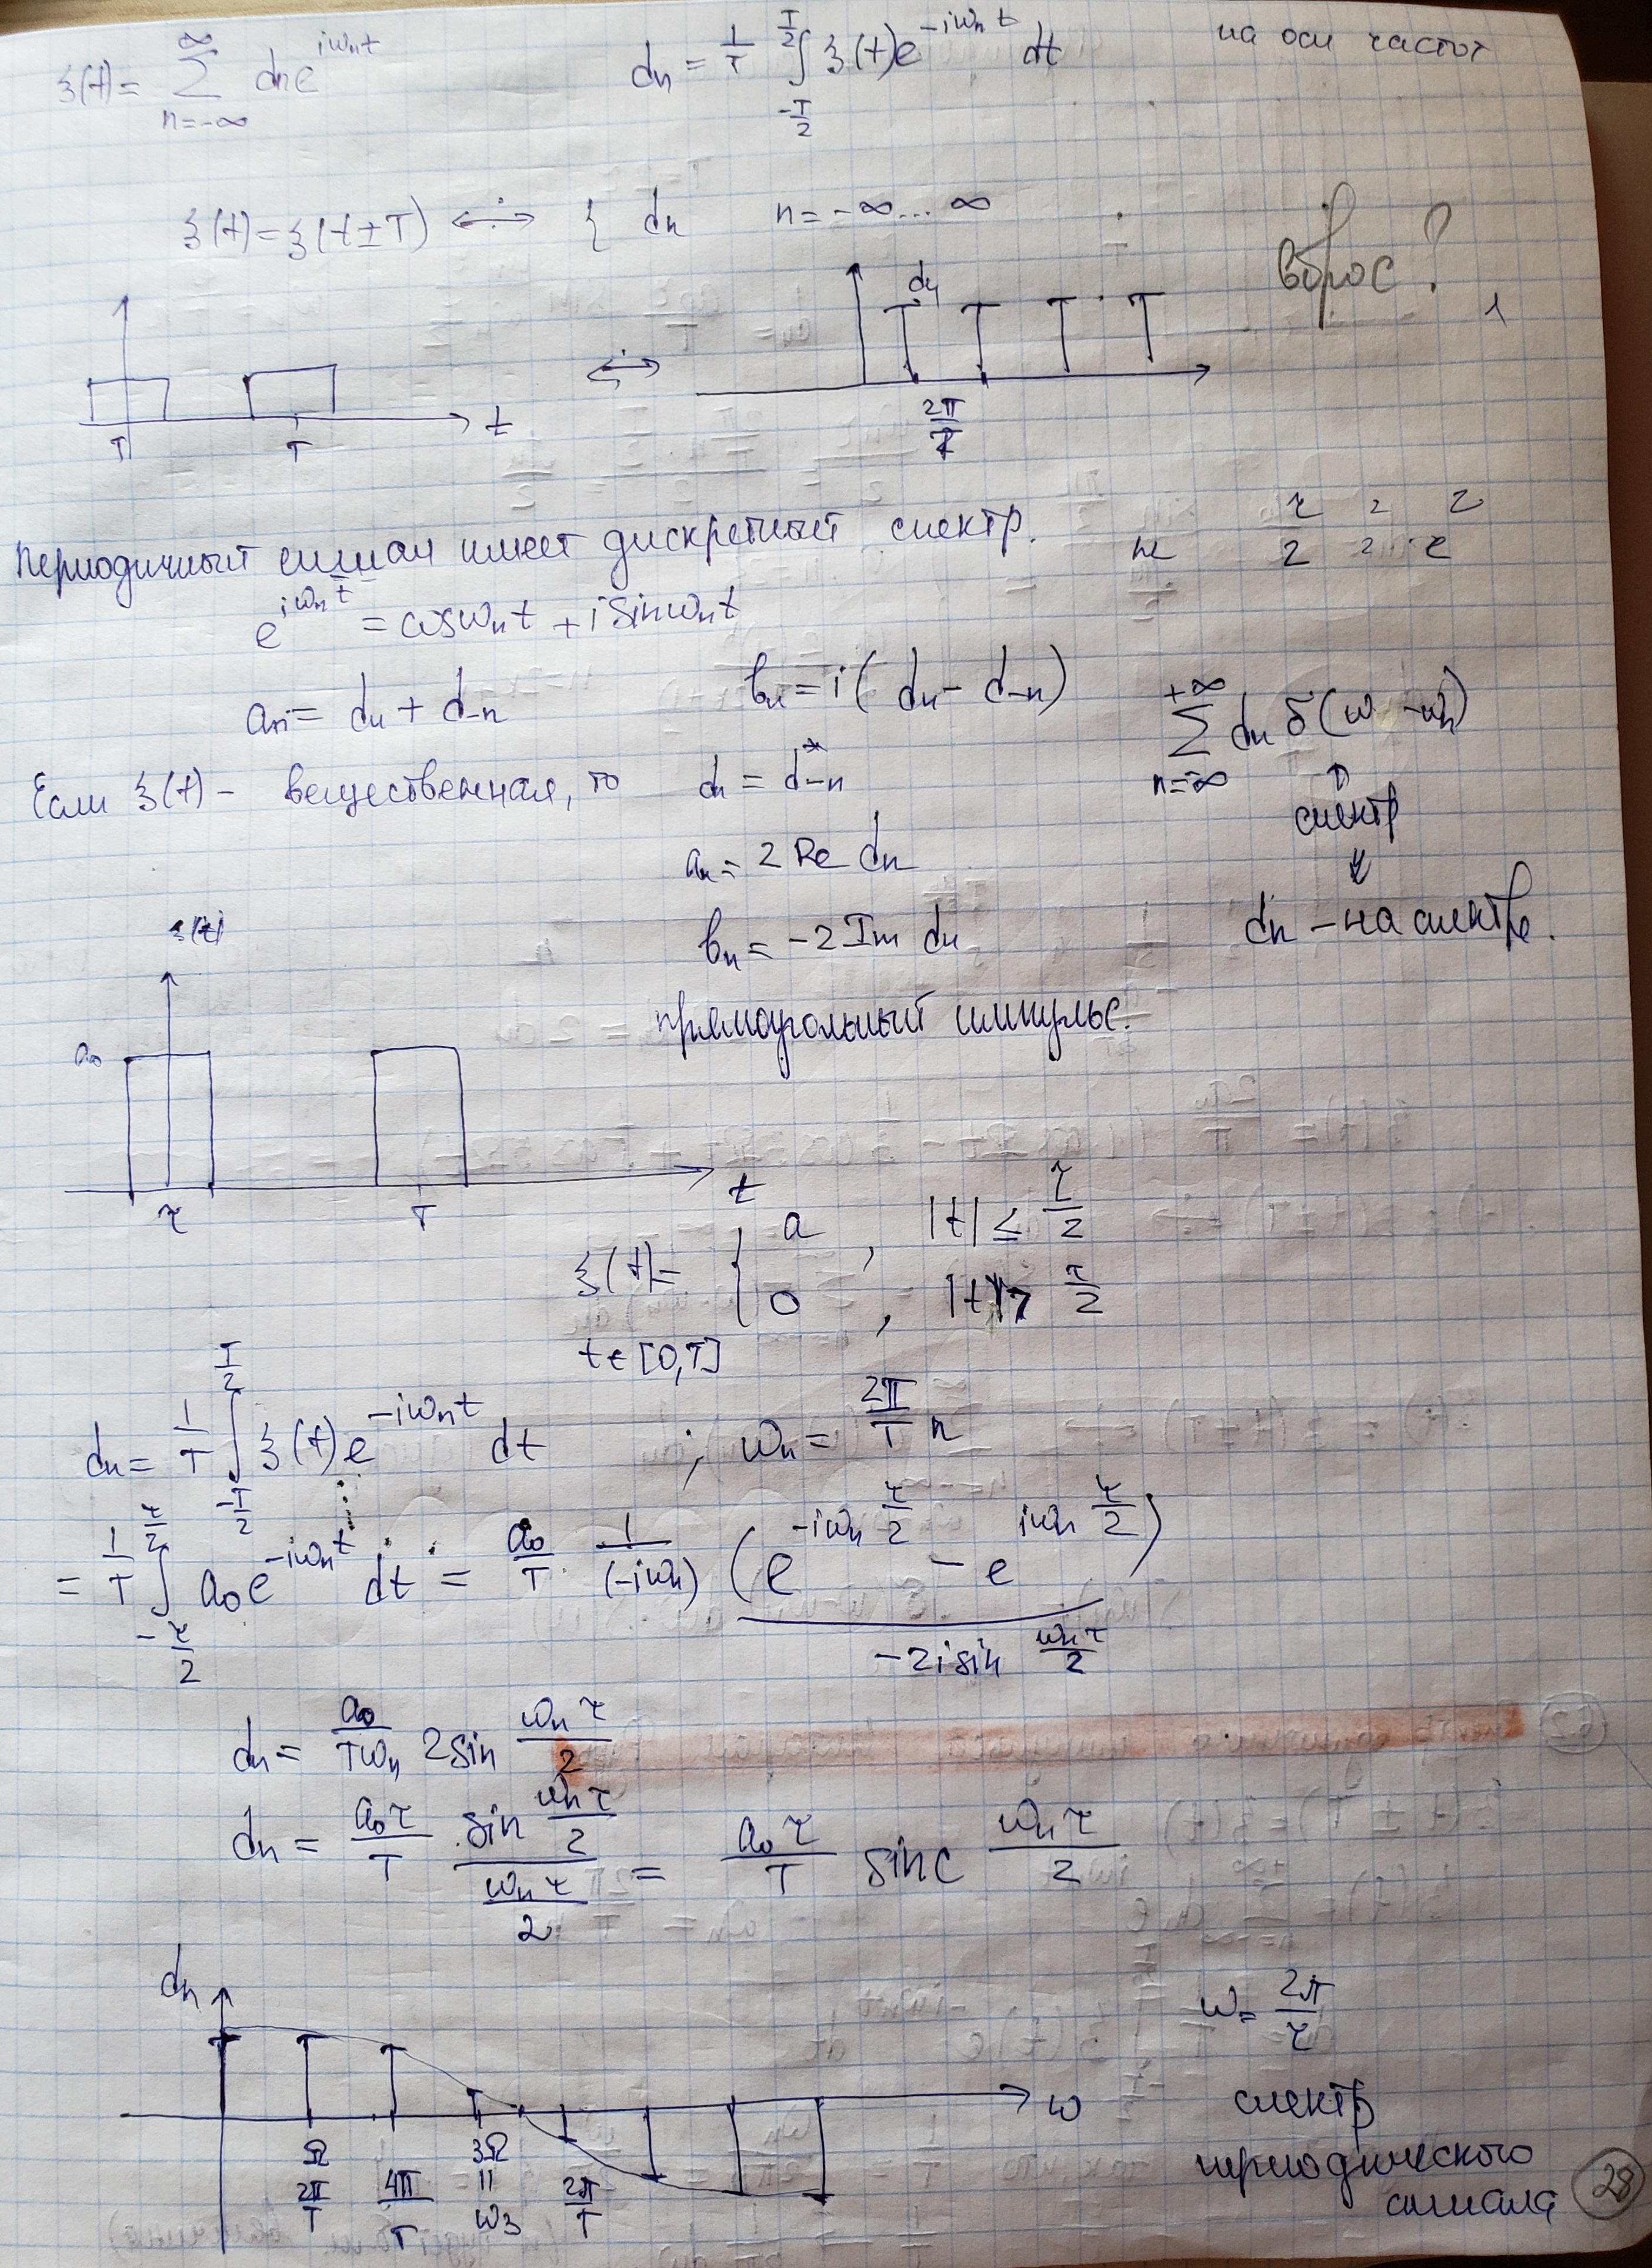 ξ(t) = ∑_{n=-∞}^{∞} dn e^{iωnt}    dn = 1/T ∫_{-T/2}^{T/2} ξ(t) e^{-iωnt} dt    на оси частот
ξ(t) = ξ(t±T) ⟷ { dn    n = -∞ ... ∞
вброс?
dn
t
T    T    2π/T
Периодичный сигнал имеет дискретный спектр.
τ 2 2
2 2 τ
e^{iωnt} = cosωnt + i sinωnt
an = dn + d-n    bn = i(dn - d-n)
∑_{n=-∞}^{+∞} dn δ(ω - ωn)
Если ξ(t) - вещественная, то dn = d*-n
↑
спектр
↓
an = 2 Re dn
dn - на спектре.
bn = -2 Im dn
ξ(t)
прямоугольный импульс.
a0
τ    T    t
ξ(t) = { a , |t| ≤ τ/2
0 , |t| > τ/2
t ∈ [0,T]
dn = 1/T ∫_{-T/2}^{T/2} ξ(t) e^{-iωnt} dt ; ωn = 2π/T n
= 1/T ∫_{-τ/2}^{τ/2} a0 e^{-iωnt} dt = a0/T · 1/(-iωn) (e^{-iωn τ/2} - e^{iωn τ/2})
-2i sin ωnτ/2
dn = a0/Tωn 2 sin ωnτ/2
dn = a0τ/T · sin ωnτ/2 / ωnτ/2 = a0τ/T sinc ωnτ/2
dn
ω = 2π/τ
ω
спектр
периодического
сигнала
Ω    3Ω
2π/T    4π/T    ||    2π/T
ω3
28